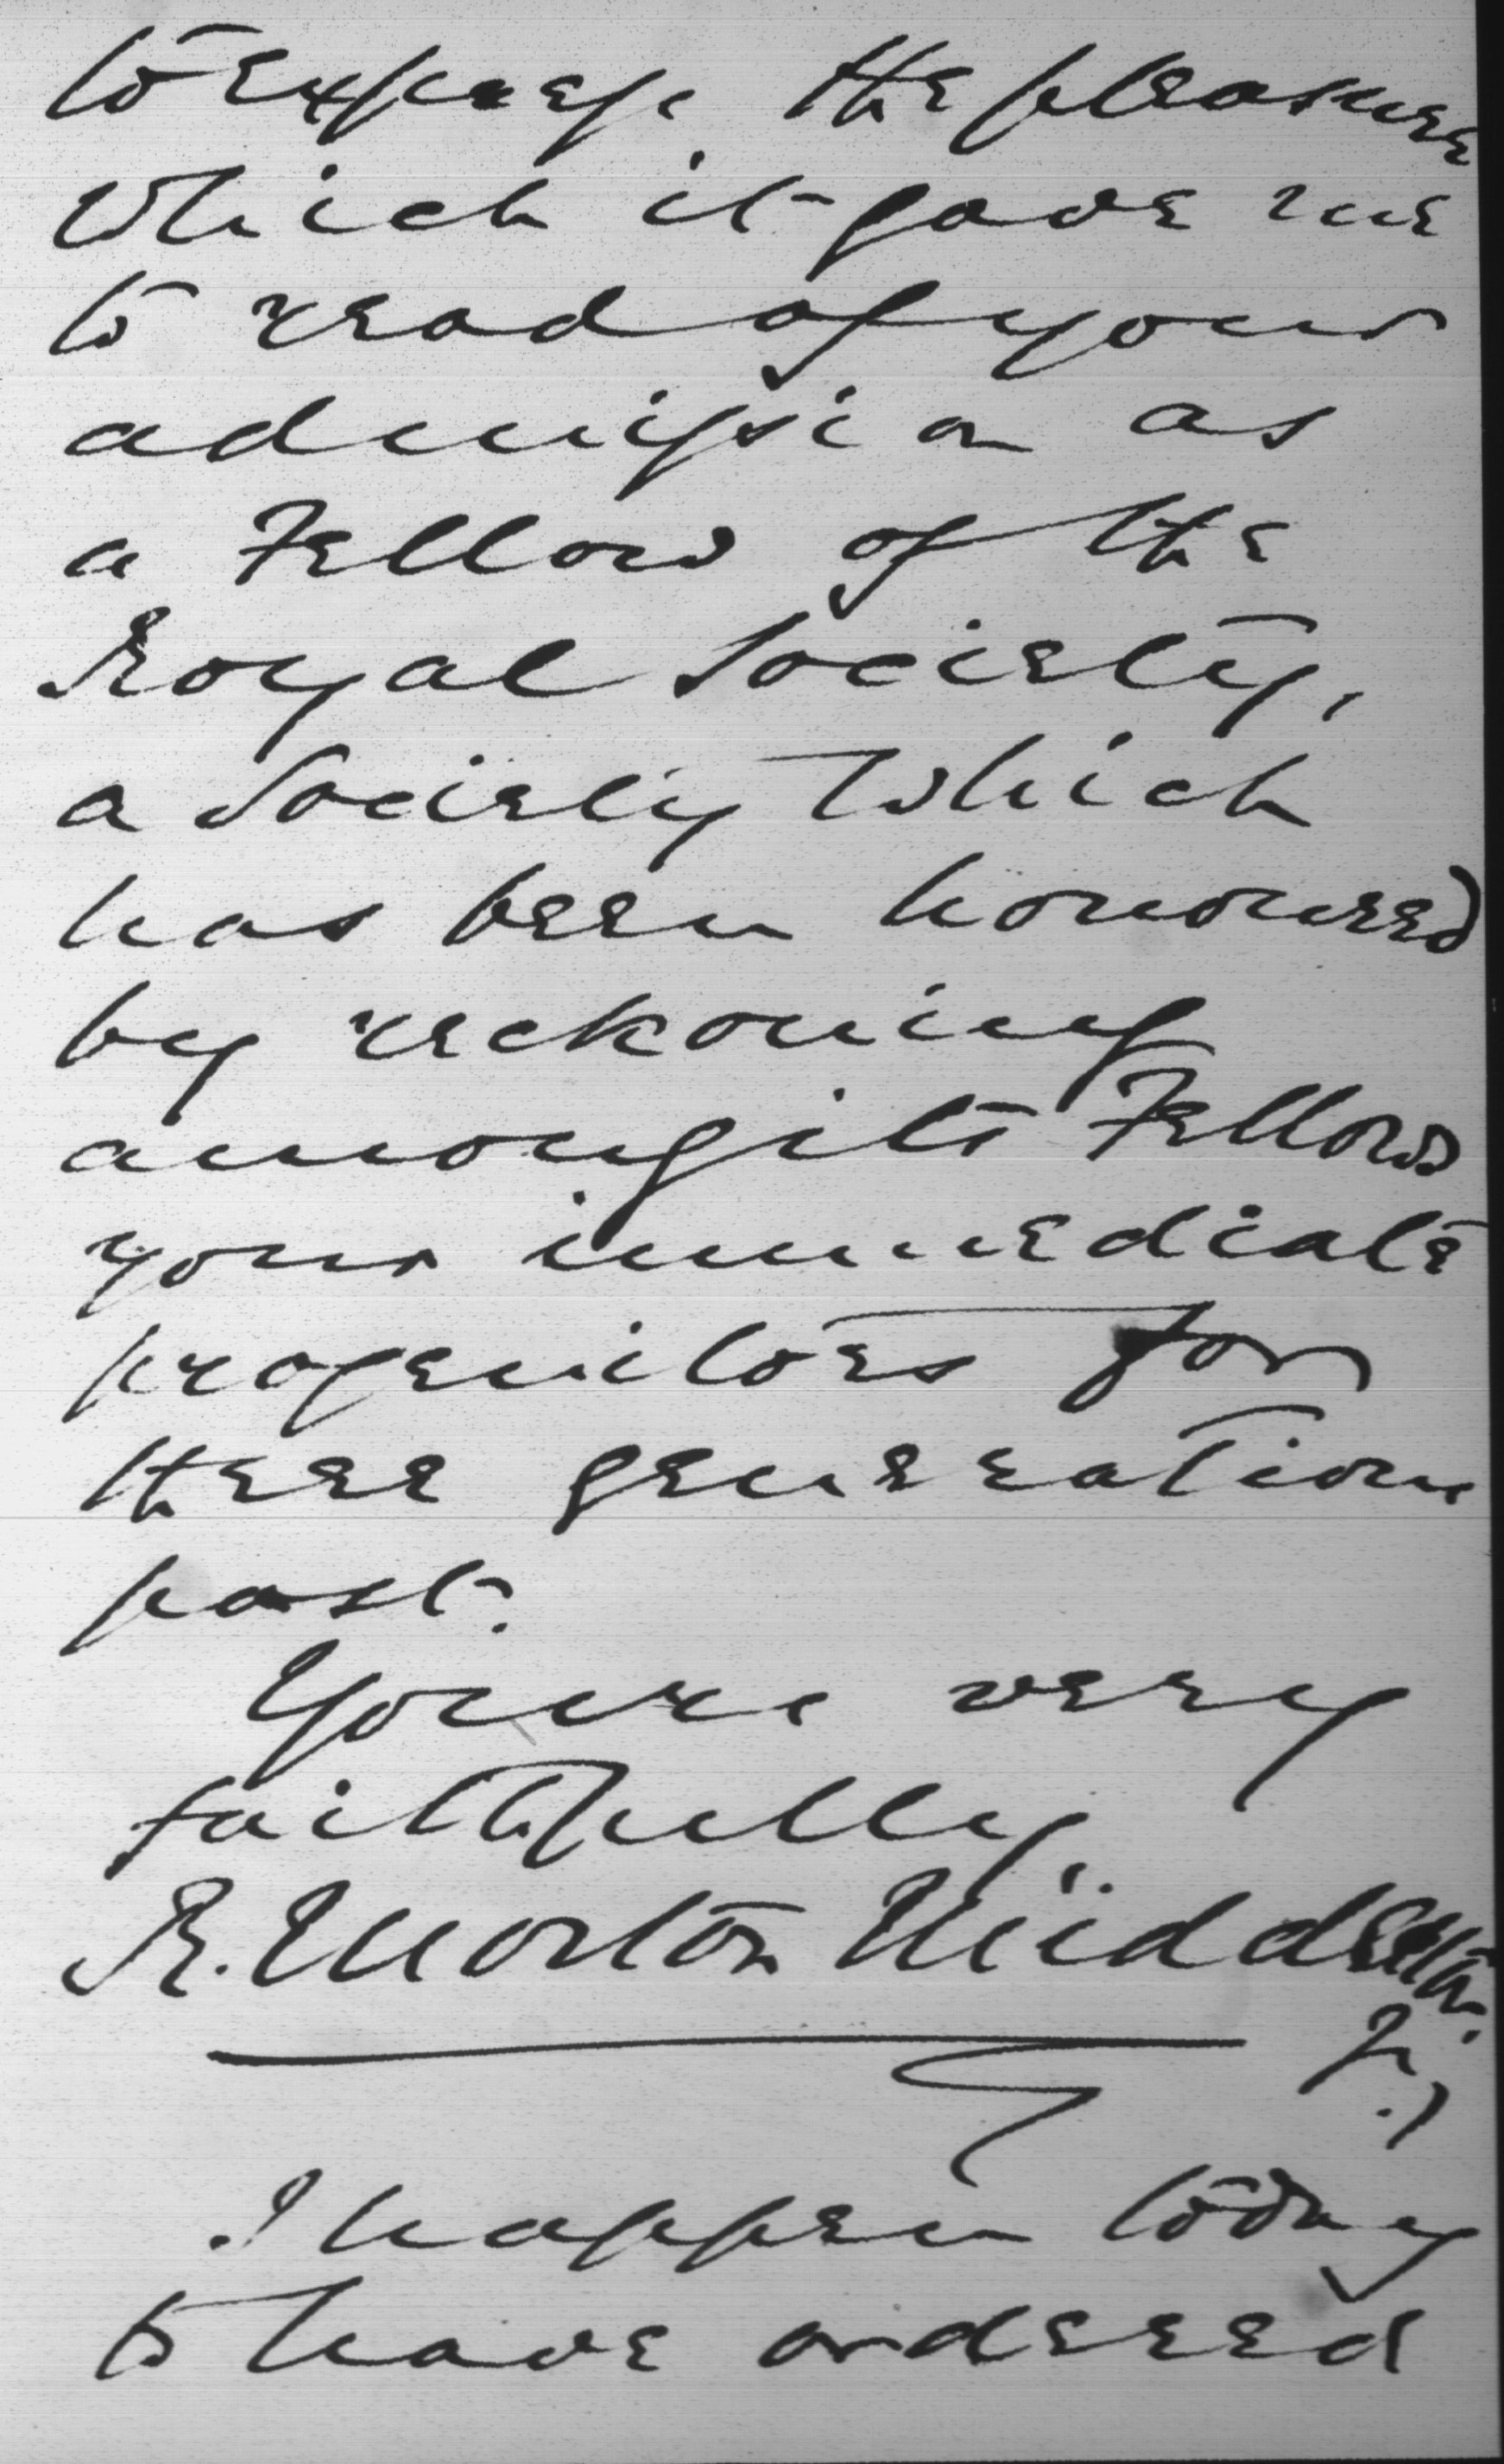 to express the pleasure
which it gave me
to read of your
admission as
a Fellow of the
Royal Society,
a Society which
has been honoured
by reckoning
among its Fellows
your immediate
progenitors for
three generations
past.
Yours very
faithfully
R. Morton Middleton.
Jr.)
I happen today
to have ordered